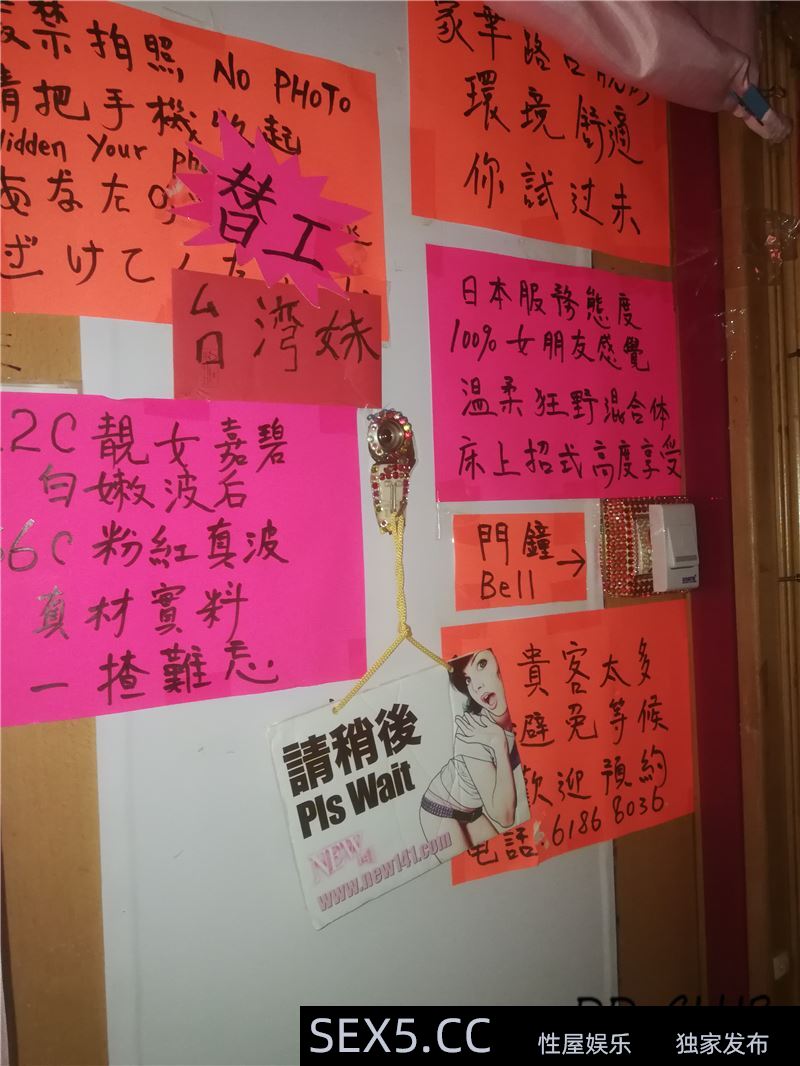 嚴禁拍照 NO PHOTO
請把手機收起
Hidden your
あなたの
替工
台灣妹
環境舒適
你試过未
日本服務態度
100% 女朋友感覺
溫柔狂野混合体
床上招式高度享受
2C 靚女嘉碧
白嫩波后
36C 粉紅真波
真材實料
一揸難忘
門鐘→
Bell
貴客太多
避免等候
歡迎預約
电話:6186 8036
請稍後
Pls Wait
NEW
www.new141.com
SEX5.CC 性屋娱乐 独家发布